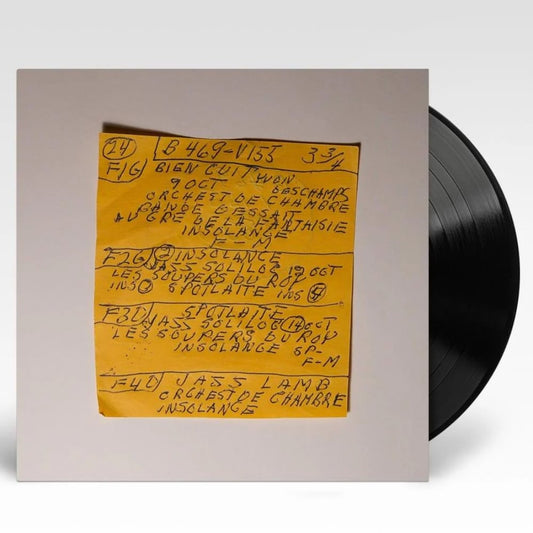 24 B 469-V155 3 3/4
F1G BIEN CUIT YVON
9 OCT DESCHAMPS
ORCHEST DE CHAMBRE
BANDE D'ESSAIT
AU GRE DE LA FANTAISIE
INSOLANGE
F-M
F2G INSOLANGE
JASS SOLILOG 19 OCT
LES SOUPERS DU ROY
INS SPOTLAITE INS
F3D SPOTLAITE
JASS SOLILOG 14 OCT
LES SOUPERS DU ROY
INSOLANGE SP-
F-M
F4D JASS LAMB
ORCHEST DE CHAMBRE
INSOLANGE